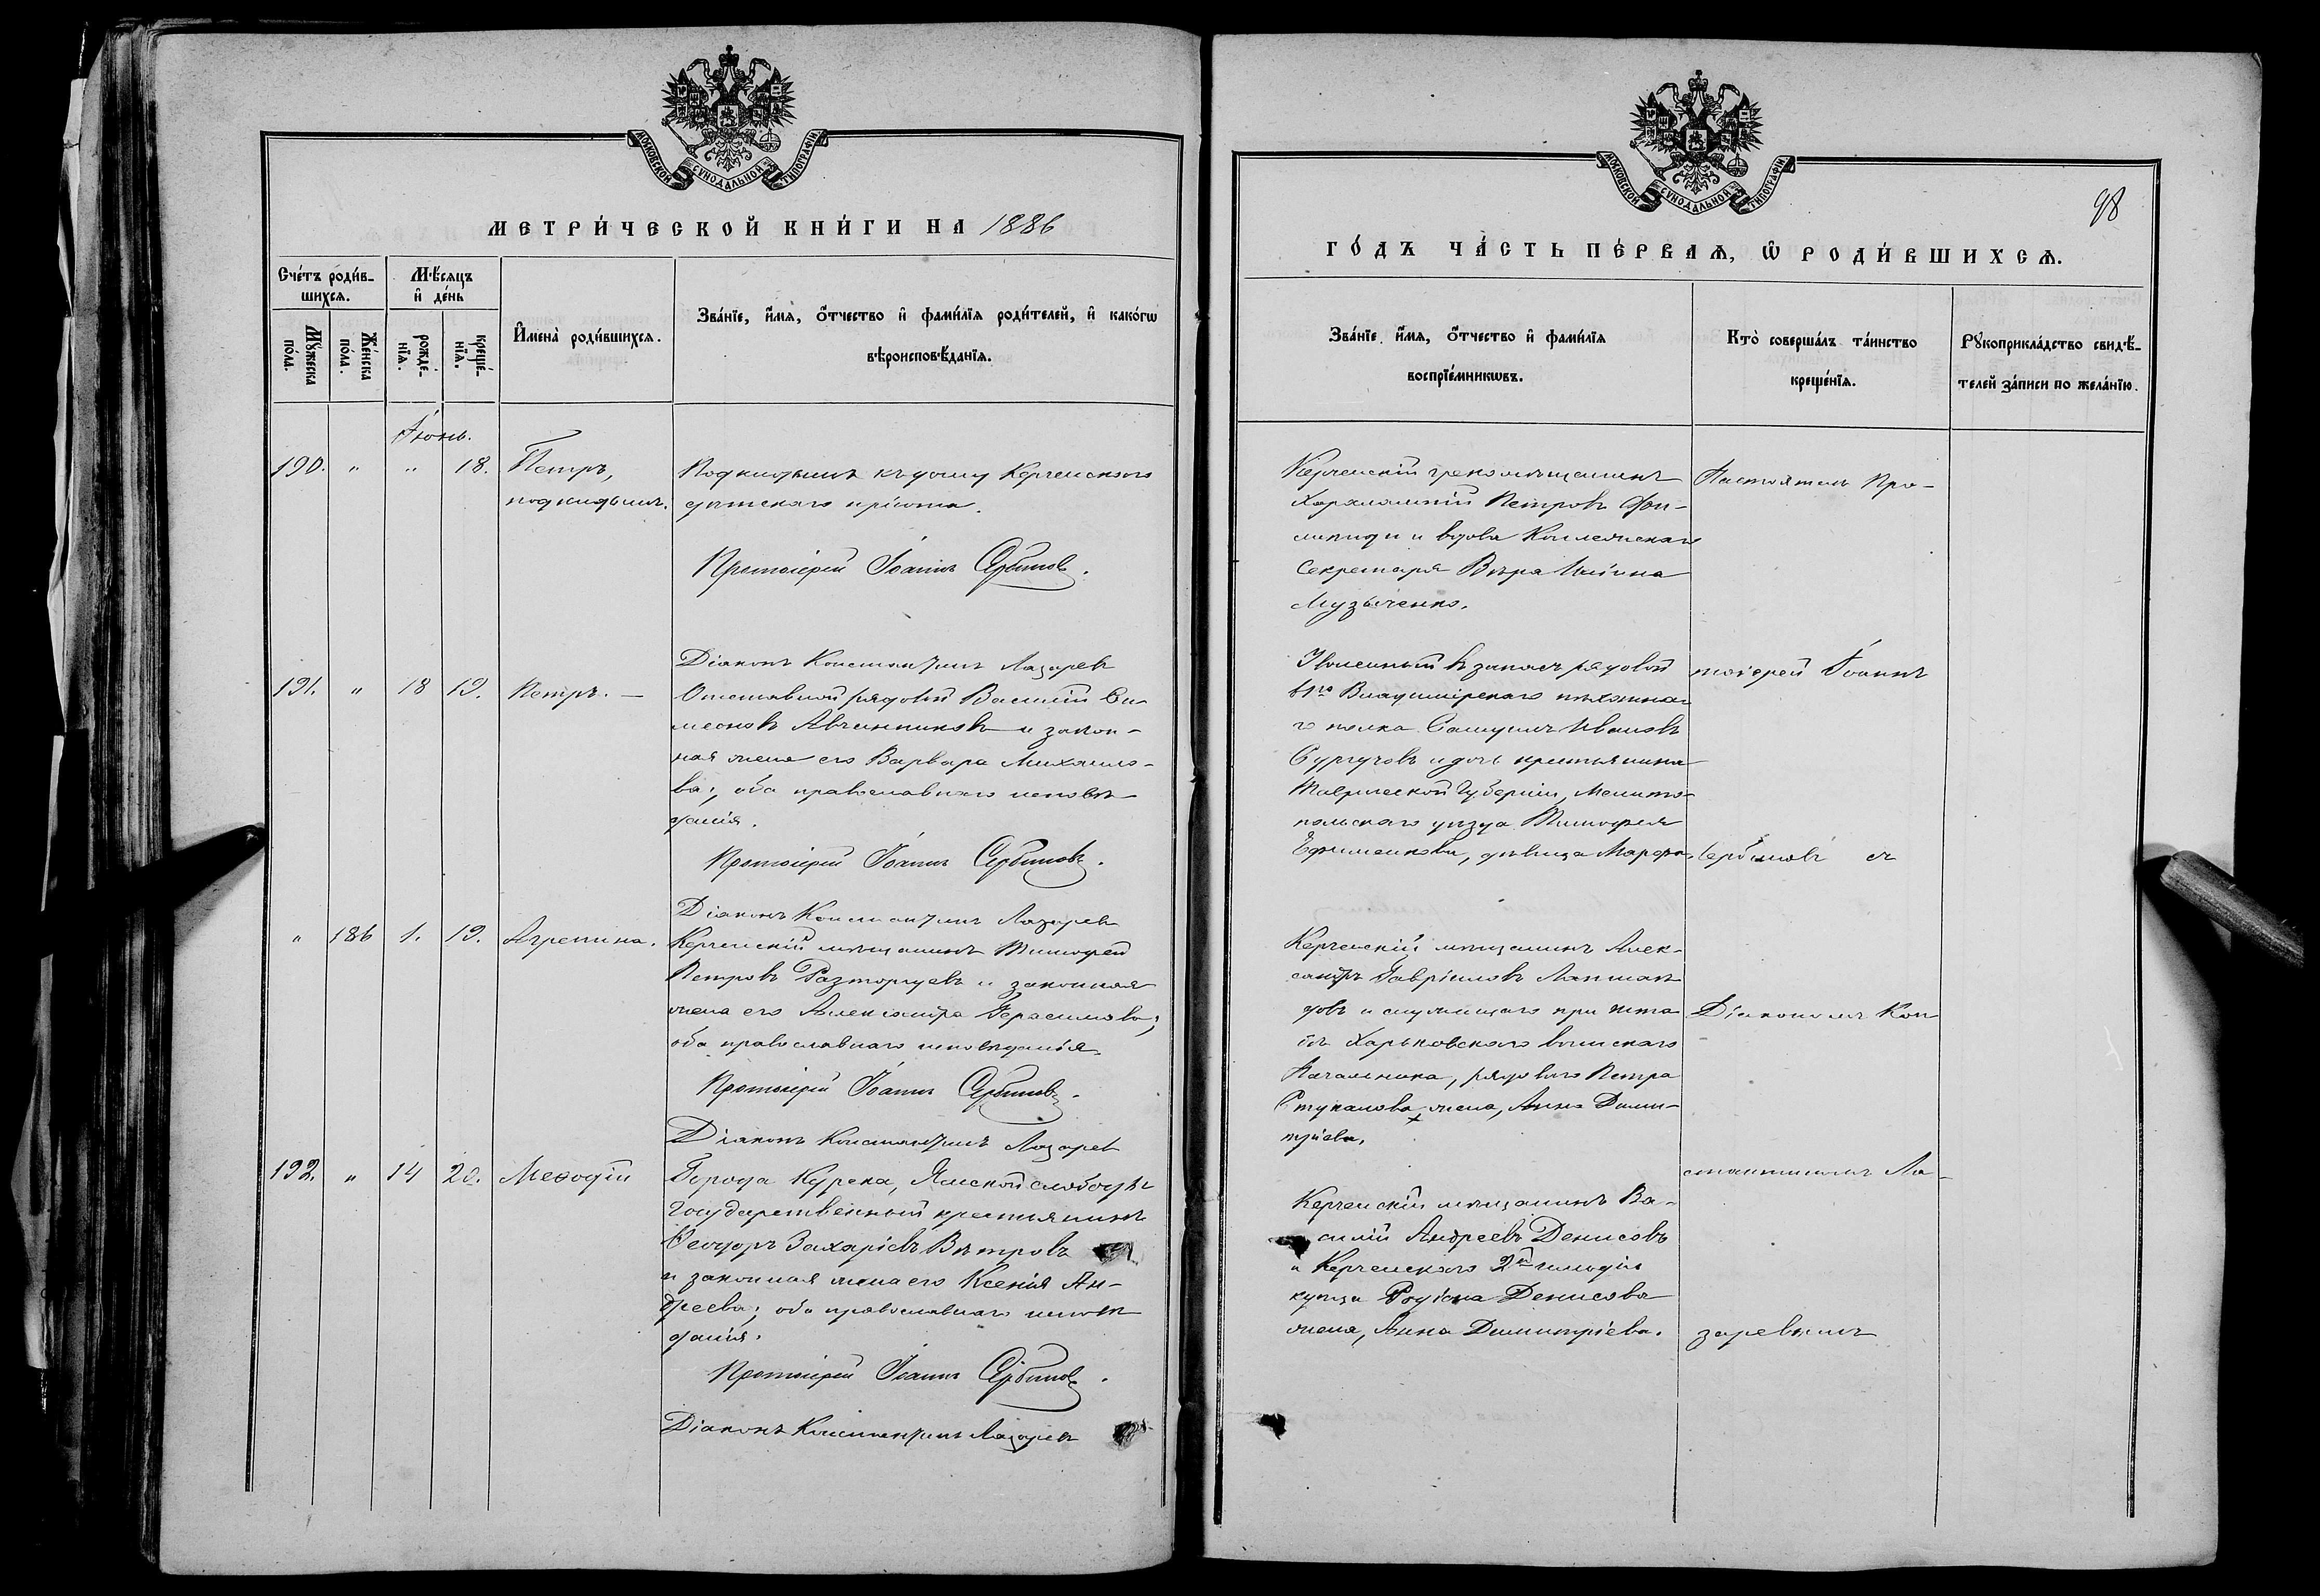 МОСКОВСКОЙ СѴНОДАЛЬНОЙ ТИПОГРАФІИ
МЕТРИ́ЧЕСКОЙ КНИ́ГИ НА 1886
Сче́тъ роди́в-
шихсѧ.
Мѣ́сѧцъ
и҆ де́нь
Мꙋ́жеска
по́ла.
Же́нска
по́ла.
рожде́-
нїѧ.
креще́-
нїѧ.
И҆мена̀ роди́вшихсѧ.
Зва́нїе, и҆́мѧ, ѻ҆́тчество и҆ фами́лїѧ роди́телей, и҆ како́гѡ
вѣроисповѣ́данїѧ.
Іюнь.
190. " " 18. Петръ,
подкидышъ.
Подкидышъ къ дому Керченскаго
дѣтскаго пріюта.
Протоіерей Іоаннъ Сербиновъ.
Діаконъ Константинъ Лазаревъ
191. " 18 19. Петръ. —
Отставной рядовой Василій Си-
меоновъ Авчинниковъ и закон-
ная жена его Варвара Михаило-
ва; оба православнаго исповѣ-
данія.
Протоіерей Іоаннъ Сербиновъ.
Діаконъ Константинъ Лазаревъ
" 186 1. 19. Агрепина.
Керченскій мѣщанинъ Тимофей
Петровъ Разторгуевъ и законная
жена его Александра Герасимова;
оба православнаго исповѣданія.
Протоіерей Іоаннъ Сербиновъ.
Діаконъ Константинъ Лазаревъ
192. " 14 20. Меѳодій
Города Курска, Ямской слободы
государственный крестьянинъ
Ѳеодоръ Захаріевъ Вѣтровъ
и законная жена его Ксенія Ан-
дреева; оба православнаго исповѣ
данія.
Протоіерей Іоаннъ Сербиновъ.
Діаконъ Константинъ Лазаревъ
МОСКОВСКОЙ СѴНОДАЛЬНОЙ ТИПОГРАФІИ
98
ГО́ДЪ ЧА́СТЬ ПЕ́РВАѦ, Ѽ РОДИ́ВШИХСѦ.
Зва́нїе, и҆́мѧ, ѻ҆́тчество и҆ фами́лїѧ
воспрїе́мникѡвъ.
Кто̀ соверша́лъ та́инство
креще́нїѧ.
Рꙋкоприкла́дство свидѣ́-
телей за́писи по жела́нїю.
Керченскій грекомѣщанинъ
Харлампій Петровъ Фи-
липиди и вдова Коллежскаго
Секретаря Вѣра Ильина
Музыченко.
Настоятель Про-
Уволенный въ запасъ рядовой
61го Владимірскаго пѣхотна-
го полка Самуилъ Ивановъ
Сургучовъ и дочь крестьянина
Таврической Губерніи, Мелито-
польскаго уѣзда Тимофея
Ефименкова, дѣвица Марфа.
тоіерей Іоаннъ
Сербиновъ съ
Керченскій мѣщанинъ Алек-
сандръ Гавріиловъ Лапшан
довъ и служащаго при шта
бѣ Харьковскаго воинскаго
Начальника, рядоваго Петра
Стуканова жена, Анна Дими-
тріева.
Діакономъ Кон
стантиномъ Ла-
Керченскій мѣщанинъ Ва-
силій Андреевъ Денисовъ
и Керченскаго 2й гильдіи
купца Родіона Денисова
жена, Анна Димитріева.
заревымъ